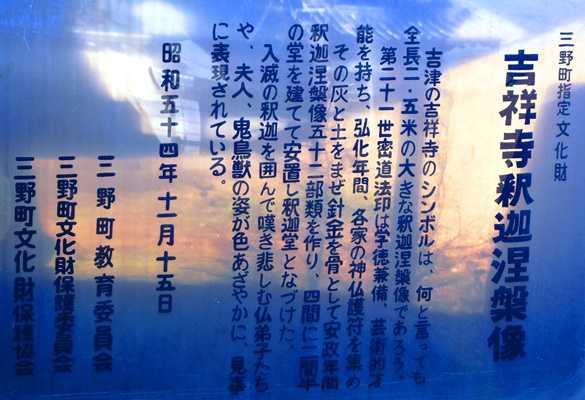 三野町指定文化財
吉祥寺釈迦涅槃像
吉津の吉祥寺のシンボルは、何と言っても
全長二・五米の大きな釈迦涅槃像であろう。
第二十一世密道法印は学徳兼備、芸術的才
能を持ち、弘化年間、各家の神仏護符を集め
その灰と土をまぜ針金を骨として安政年間
釈迦涅槃像五十二部類を作り、四間に二間半
の堂を建てて安置し釈迦堂となづけた。
入滅の釈迦を囲んで嘆き悲しむ仏弟子たち
や、夫人、鬼鳥獣の姿が色あざやかに、見事
に表現されている。
昭和五十四年十一月十五日
三野町教育委員会
三野町文化財保護委員会
三野町文化財保護協会